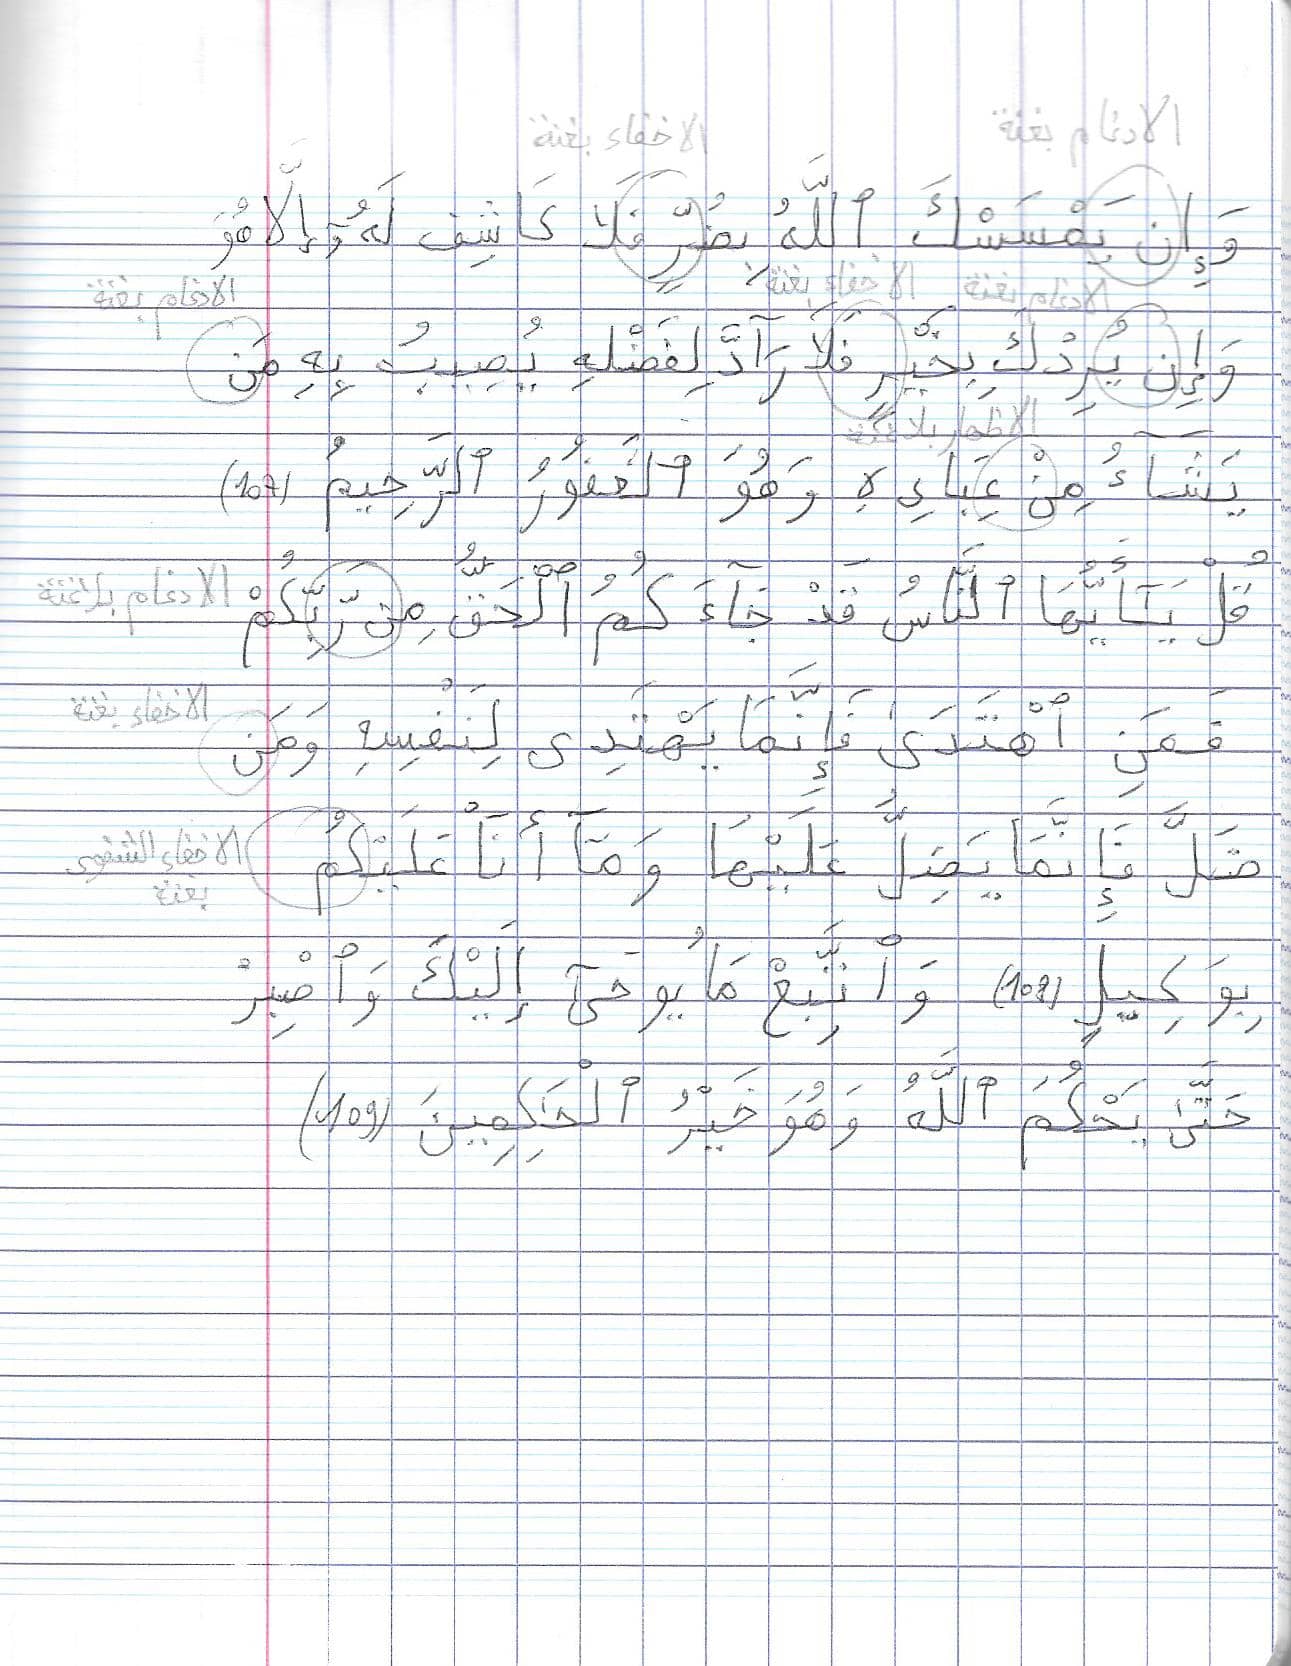 الادغام بغنة
الاخفاء بغنة
وَإِن يَمْسَسْكَ ٱللَّهُ بِضُرٍّ فَلَا كَاشِفَ لَهُۥٓ إِلَّا هُوَ
الادغام بغنة
الاخفاء بغنة
الادغام بغنة
وَإِن يُرِدْكَ بِخَيْرٍ فَلَا رَآدَّ لِفَضْلِهِ يُصِيبُ بِهِ مَن
الاظهار بلا غنة
يَشَآءُ مِنْ عِبَادِهِ وَهُوَ ٱلْغَفُورُ ٱلرَّحِيمُ (107)
قُلْ يَـٓأَيُّهَا ٱلنَّاسُ قَدْ جَآءَكُمُ ٱلْحَقُّ مِن رَّبِّكُمْ
الادغام بلاغنة
فَمَنِ ٱهْتَدَىٰ فَإِنَّمَا يَهْتَدِى لِنَفْسِهِ وَمَن
الاخفاء بغنة
ضَلَّ فَإِنَّمَا يَضِلُّ عَلَيْهَا وَمَآ أَنَا۠ عَلَيْكُمْ
الاخفاء الشفوى
بغنة
بِوَكِيلٍ (108) وَٱتَّبِعْ مَا يُوحَىٰٓ إِلَيْكَ وَٱصْبِرْ
حَتَّىٰ يَحْكُمَ ٱللَّهُ وَهُوَ خَيْرُ ٱلْحَـٰكِمِينَ (109)